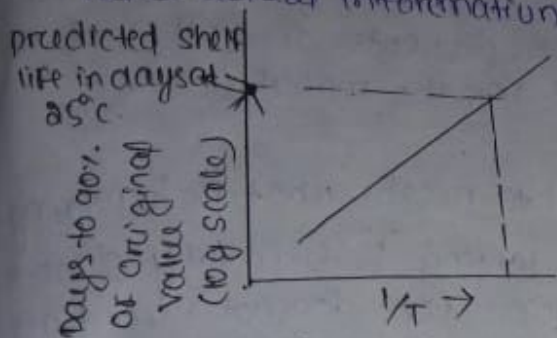 information
predicted shelf
life in days at
25°C.
Days to 90%
of original
value
(log scale)
1/T →